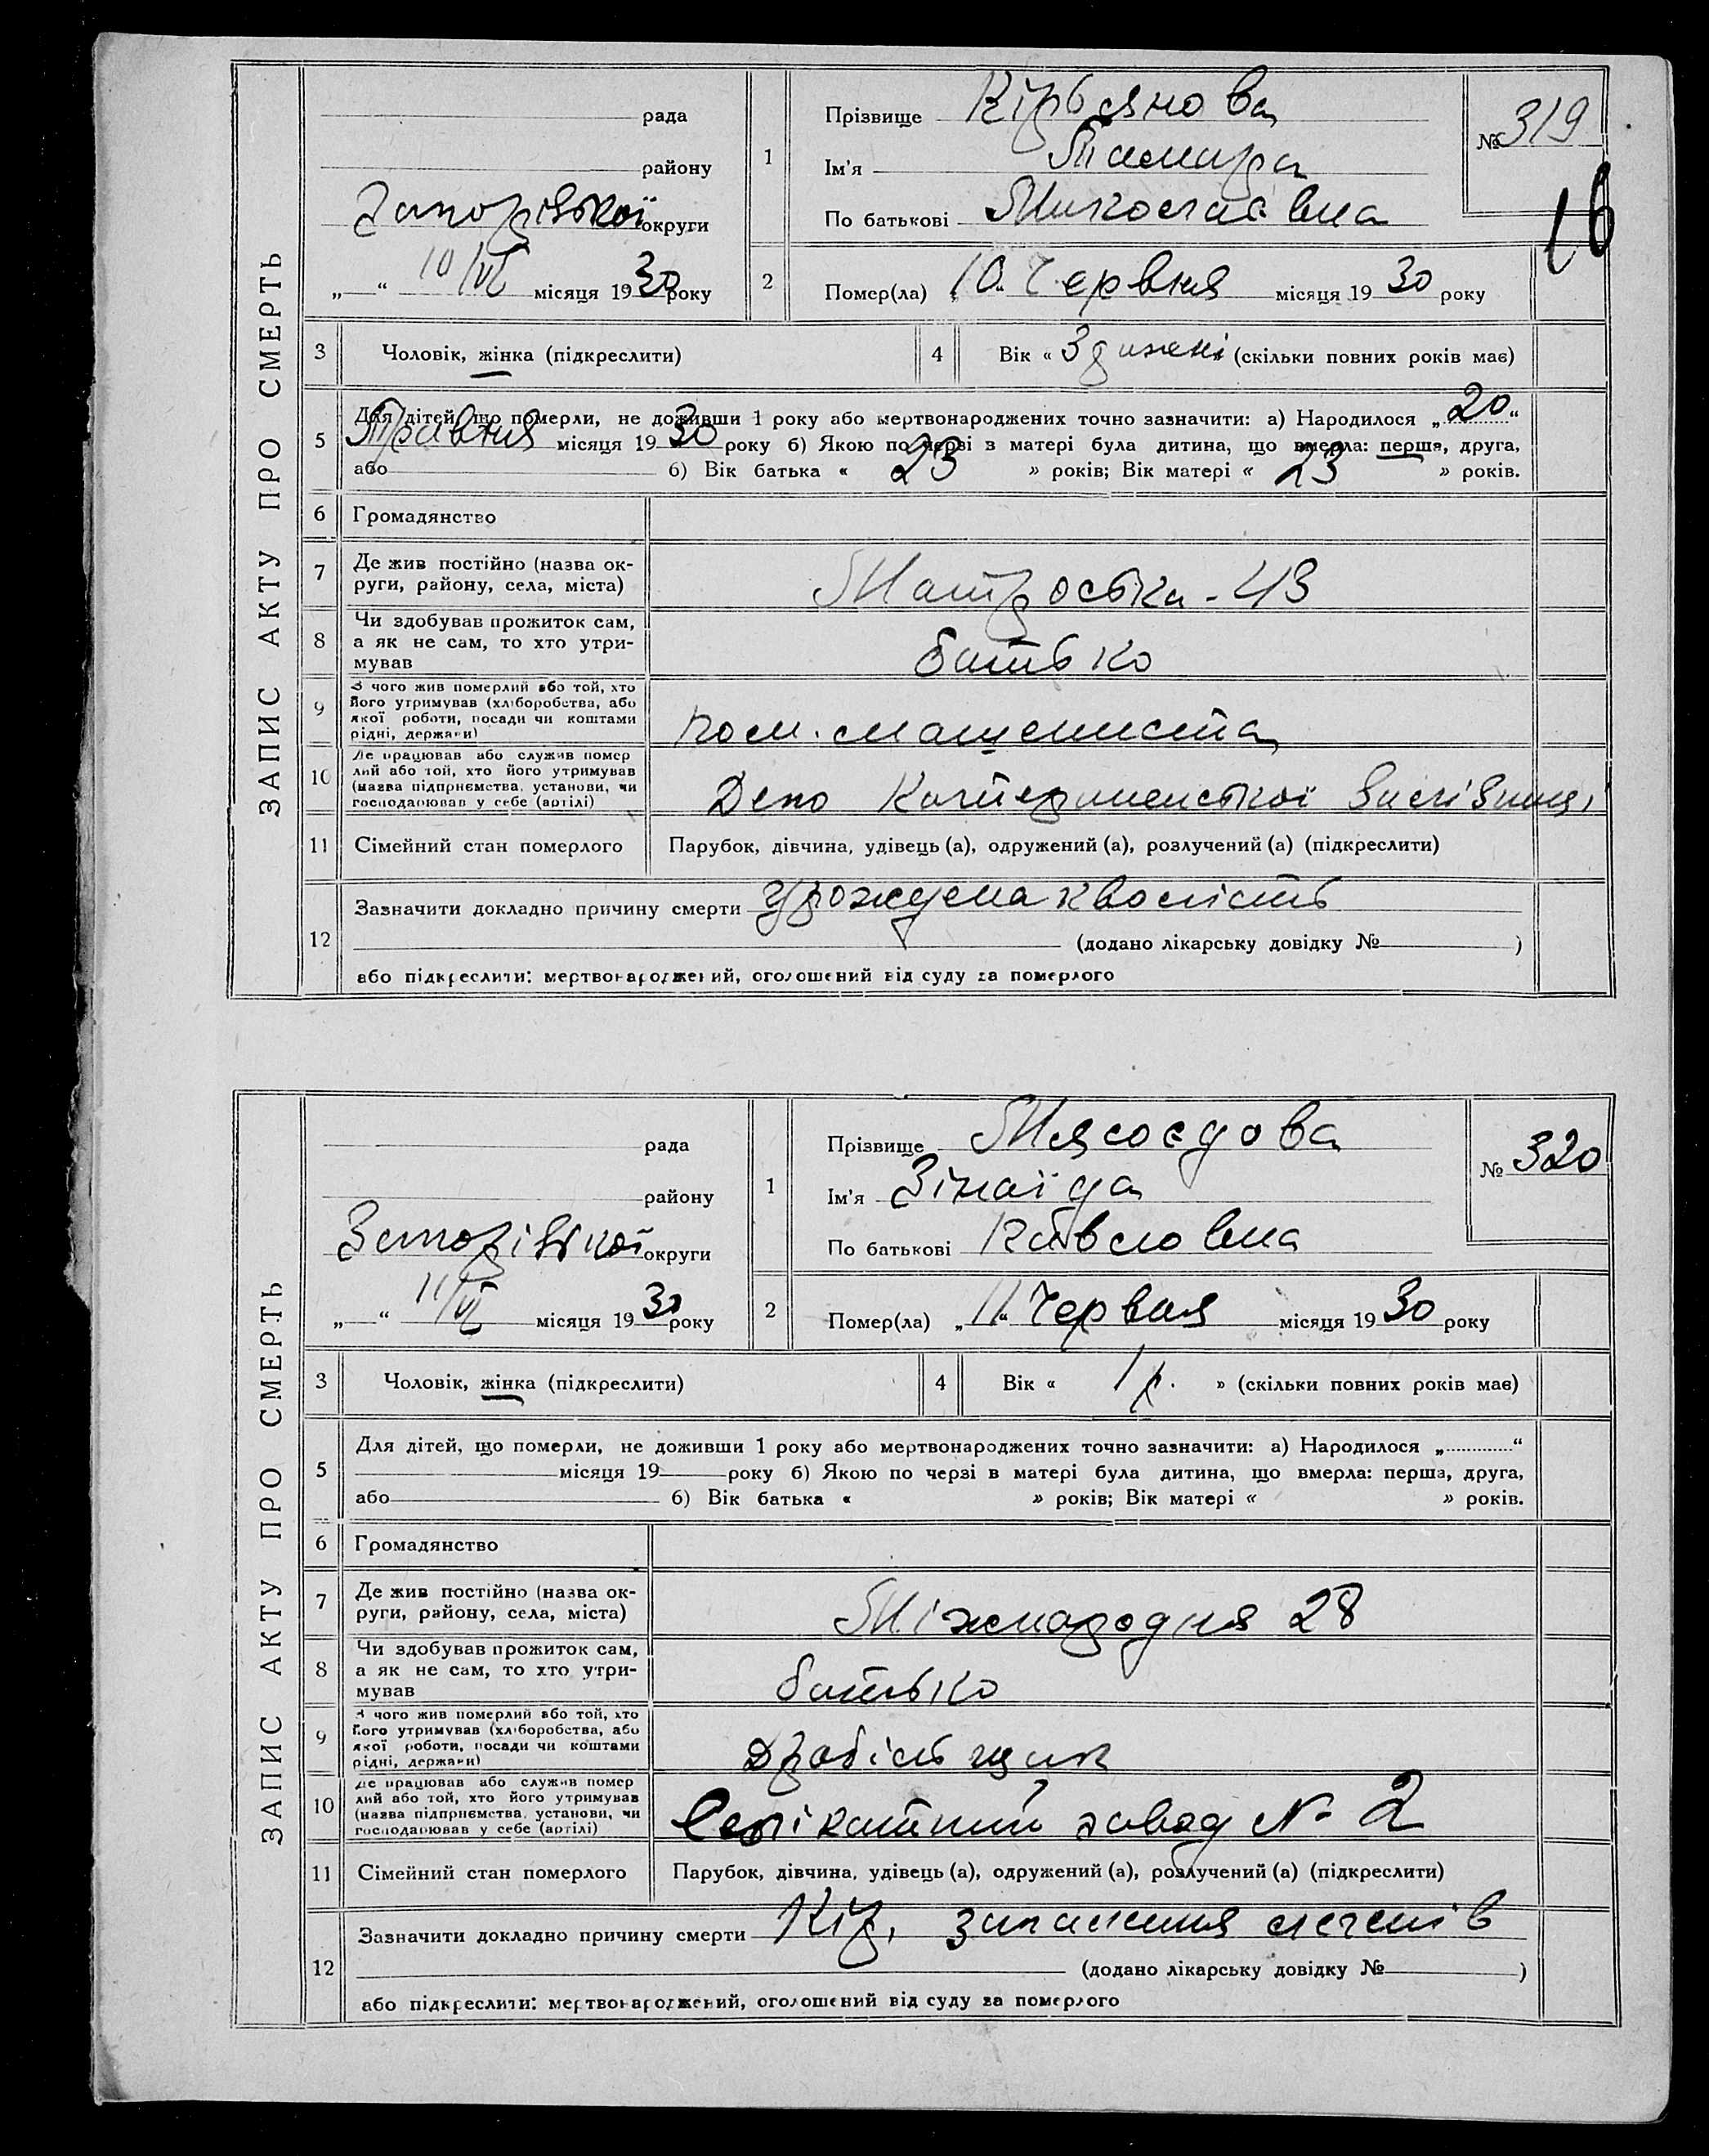 ЗАПИС АКТУ ПРО СМЕРТЬ
рада
району
Запорізької округи
„ “ 10/VI місяця 1930 року
1
Прізвище Кірьянова
Ім'я Тамара
По батькові Миколаївна
№ 319
16
2 Помер(ла) 10 Червня місяця 1930 року
3 Чоловік, жінка (підкреслити)
4 Вік « 3 тижні (скільки повних років має)
5 Для дітей, що померли, не доживши 1 року або мертвонароджених точно зазначити: а) Народилося „20“
Травня місяця 1930 року б) Якою по черзі в матері була дитина, що вмерла: перша, друга,
або б) Вік батька « 23 » років; Вік матері « 23 » років.
6 Громадянство
7 Де жив постійно (назва ок-
руги, району, села, міста)
Матроська - 43
8 Чи здобував прожиток сам,
а як не сам, то хто утри-
мував
батько
9 З чого жив померлий або той, хто
його утримував (хліборобства, або
якої роботи, посади чи коштами
рідні, держави)
пом. машениста
10 Де працював або служив помер
лий або той, хто його утримував
(назва підприємства, установи, чи
господарював у себе (артілі)
Депо Катерененської
11 Сімейний стан померлого Парубок, дівчина, удівець (а), одружений (а), розлучений (а) (підкреслити)
12 Зазначити докладно причину смерти урождена кволість
(додано лікарську довідку № )
або підкреслити: мертвонароджений, оголошений від суду за померлого
ЗАПИС АКТУ ПРО СМЕРТЬ
рада
району
Запорізької округи
„ “ 11/VI місяця 1930 року
1
Прізвище Мясоєдова
Ім'я Зінаїда
По батькові
№ 320
2 Помер(ла) „11“ Червня місяця 1930 року
3 Чоловік, жінка (підкреслити)
4 Вік « 1 р. » (скільки повних років має)
5 Для дітей, що померли, не доживши 1 року або мертвонароджених точно зазначити: а) Народилося „ “
місяця 19 року б) Якою по черзі в матері була дитина, що вмерла: перша, друга,
або б) Вік батька « » років; Вік матері « » років.
6 Громадянство
7 Де жив постійно (назва ок-
руги, району, села, міста)
Міжнародня 28
8 Чи здобував прожиток сам,
а як не сам, то хто утри-
мував
батько
9 З чого жив померлий або той, хто
його утримував (хліборобства, або
якої роботи, посади чи коштами
рідні, держави)
дробільщик
10 Де працював або служив помер
лий або той, хто його утримував
(назва підприємства, установи, чи
господарював у себе (артілі)
Сілікатний завод № 2
11 Сімейний стан померлого Парубок, дівчина, удівець (а), одружений (а), розлучений (а) (підкреслити)
12 Зазначити докладно причину смерти Кір, запалення легенів
(додано лікарську довідку № )
або підкреслити: мертвонароджений, оголошений від суду за померлого